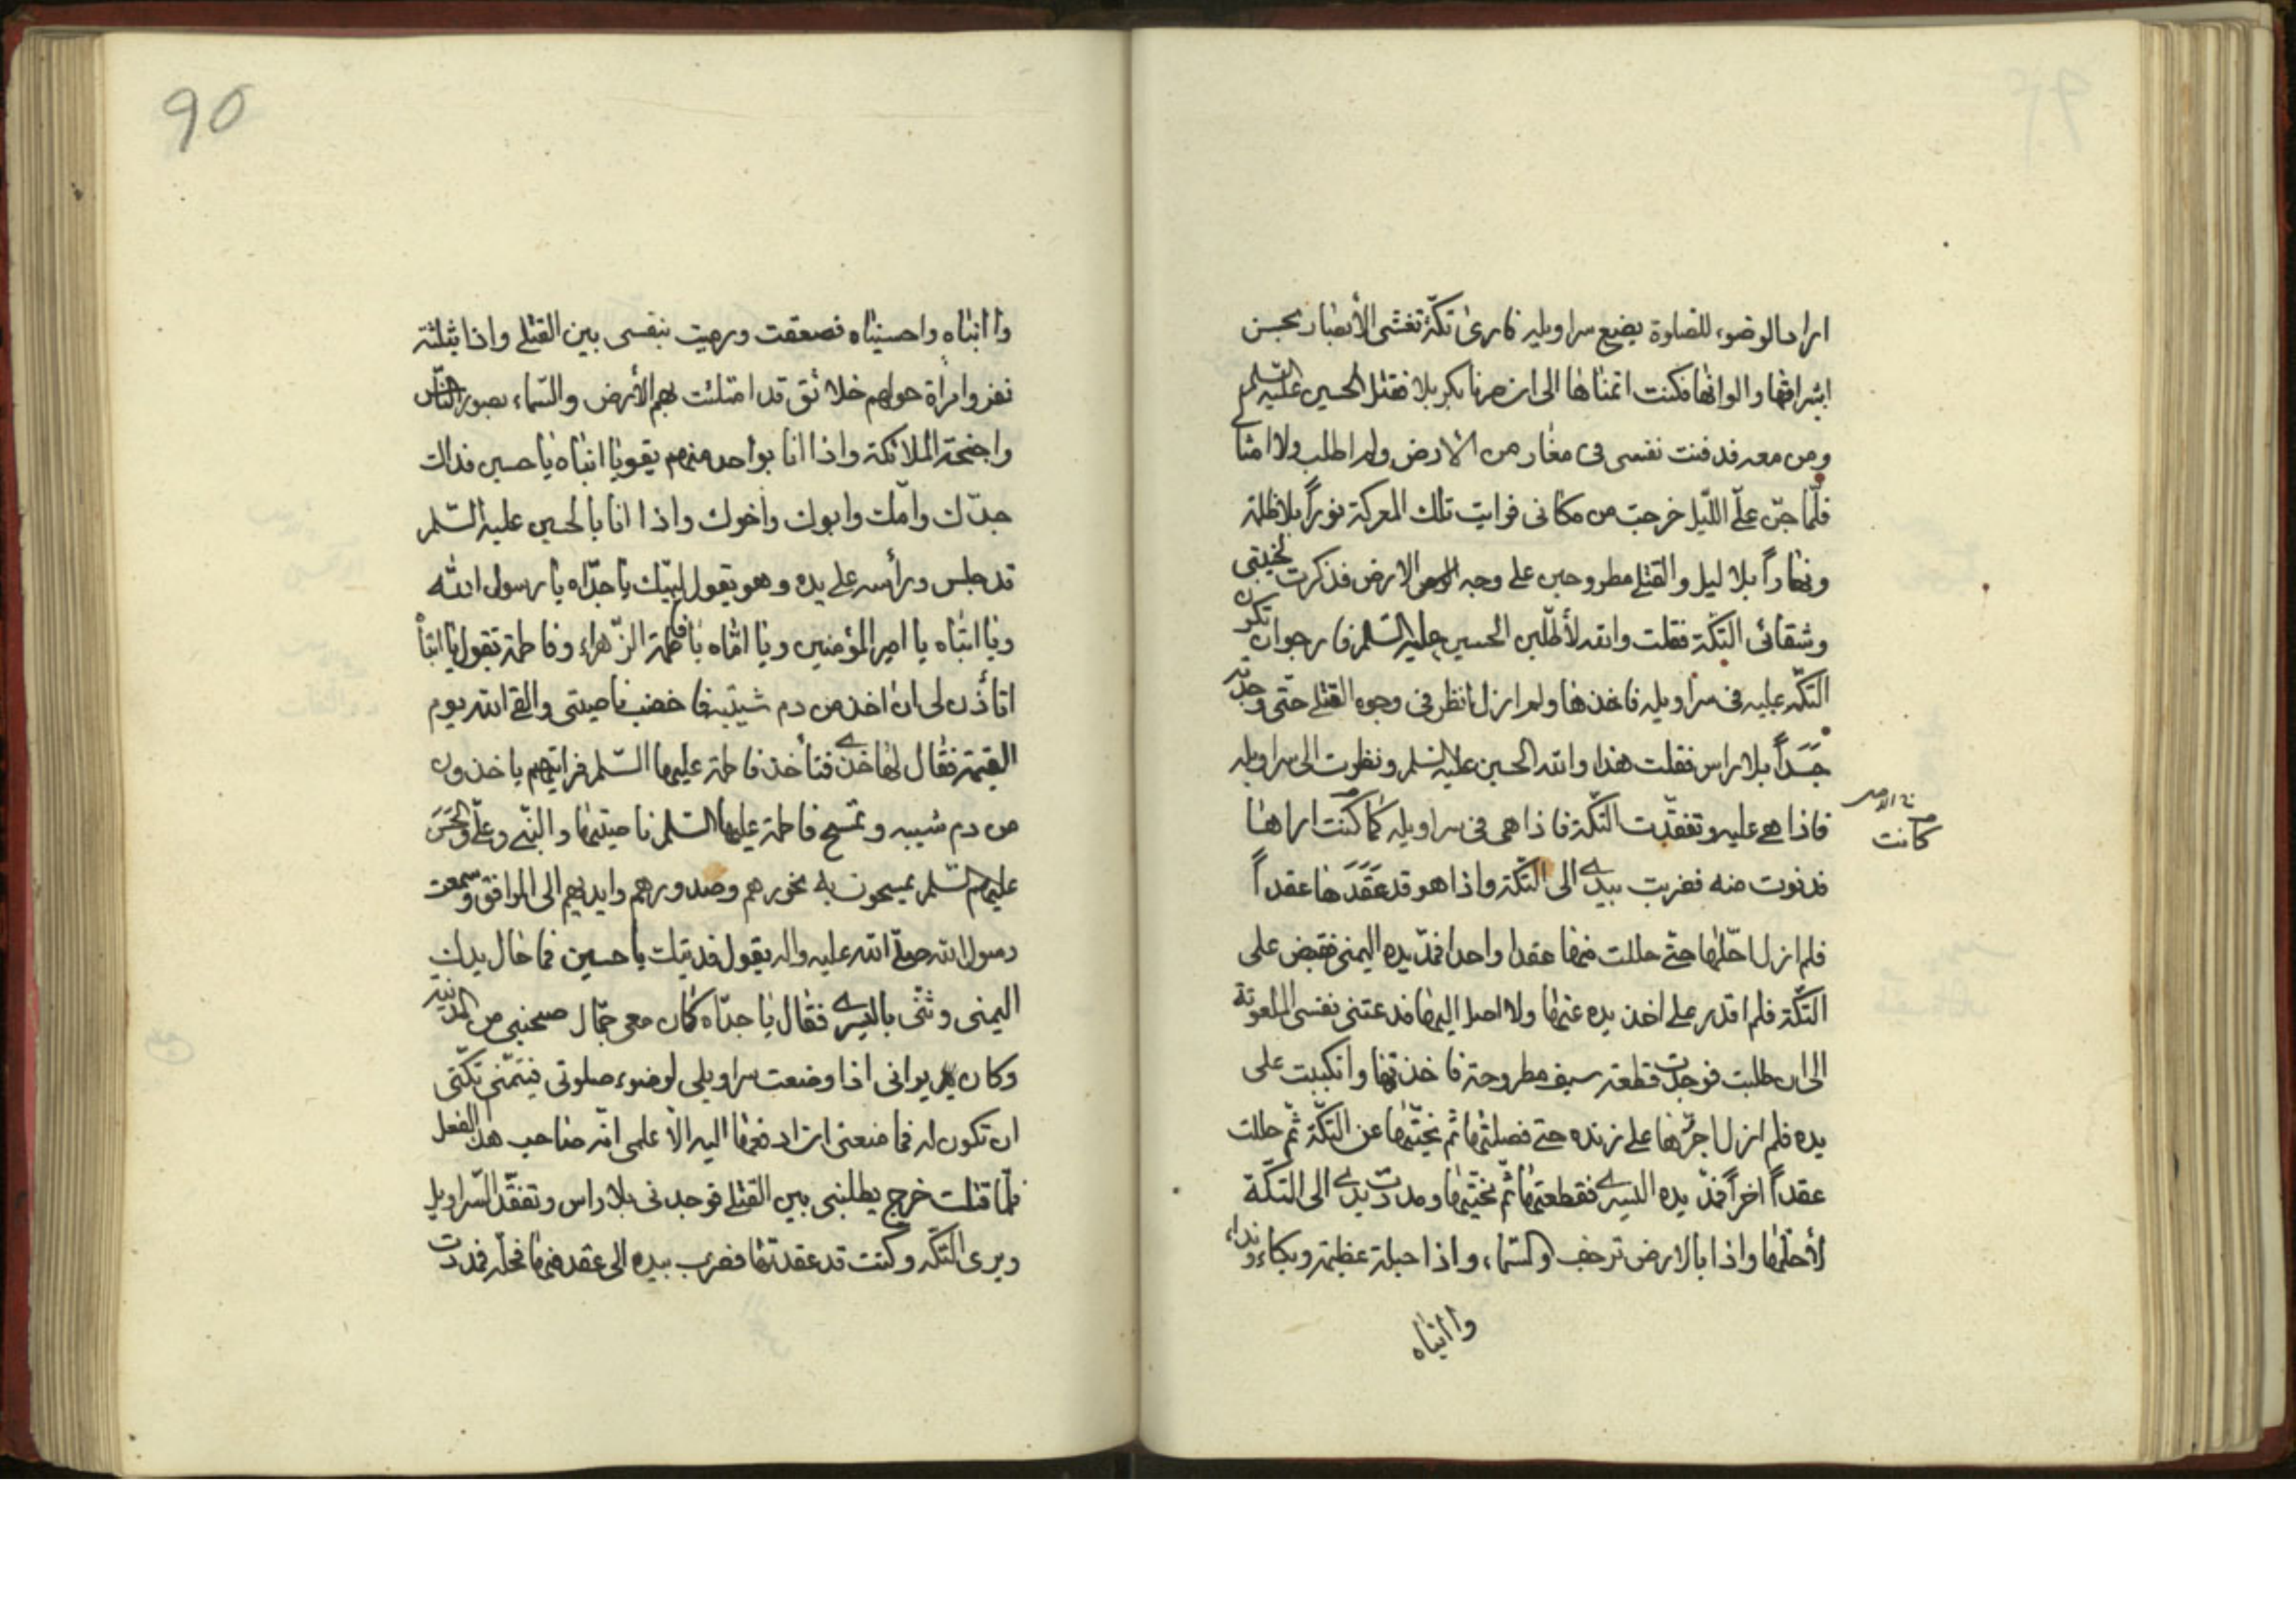 اراد الوضوء للصلوة يضيع سراويله فارى تكّة تغشى الأبصار بحسن
اشراقها والوانها فكنت اتمناها الى ان صرنا بكربلا فقتل الحسين عليه السّلم
ومن معه فدفنت نفسى فى مغار من الارض ولم اطلب ولا امثالى
فلّما جنّ علىّ اللّيل خرجت من مكانى فرايت تلك المعركة نوراً بلا ظلمة
ونهاراً بلا ليل والقتلى مطروحين على وجه الارض فذكرت لخيبتى
وشقائى التكّة فقلت والله لأطلّبن الحسين عليه السّلم فارجو ان تكون
التكّه عليه فى سراويله فاخذها ولم ازل انظر فى وجوه القتلى حتّى وجدته
جَسَداً بلا راس فقلت هذا والله الحسين عليه السّلم ونظرت الى سراويله
فاذا هى عليه وتفقّدت التكّة فاذا هى فى سراويله كما كنت اراها
كانت
فدنوت منه فضربت بيدى الى التكّة واذا هو قد عَقَدَها عقداً
فلم ازل احلّها حتّى حللت منها عقدا واحدا فمدّ يده اليمنى فقبض على
التكّة فلم اقدر على اخذ يده عنها ولا اصل اليها فدعتنى نفسى الملعونة
الى ان طلبت فوجدت قطعة سيف مطروحة فاخذتها وانكببت على
يده فلم ازل اجزّها على زنده حتى فصلتها ثم نحّيتها عن التكّة ثمّ حللت
عقداً اخراً فمدّ يده اليسرى فقطعتها ثمّ نحّيتها ومددت يدى الى التكّة
لأحلّها واذا بالارض ترجف والسّماء واذا جبلة عظيمة وبكاء ونداء
وا ابناه
90
وا ابناه واحسيناه فصعقت ورميت بنفسى بين القتلى واذا بثلثة
نفر وامرأة حولهم خلائق قد امتلئت بهم الأرض والسّماء بصور النّاس
واجنحة الملائكة واذا انا بواحد منهم يقول يا ابناه يا حسين فداك
جدّك وامّك وابوك واخوك واذا انا بالحسين عليه السّلم
قد جلس ورأسه على يده وهو يقول لبيّك يا جدّاه يا رسول الله
ويا ابتاه يا امير المؤمنين ويا امّاه يا فاطمة الزّهراء وفاطمة تقول يا ابتاً
اتأذن لى ان اخذ من دم شيبته فاخضب ناصيتى والقى الله يوم
القيمة فقال لها خذى فتأخذ فاطمة عليها السّلم فرايتهم ياخذون
من دم شيبه وتمسح فاطمة عليها السّلم ناصيتها والنّبى وعلىّ والحَسَن
عليهم السّلم يمسحون به نحورهم وصدورهم وايديهم الى المرافق وسمعت
رسول الله صلّى الله عليه واله يقول فديتك يا حسين فما حال يدك
اليمنى وثنّى باليسرى فقال يا جدّاه كان معى جمّال صحبنى من المدينة
وكان يرانى اذا وضعت سراويلى لوضوء صلوتى فيتمنّى تكّتى
ان تكون له فما منعنى ان ادفعها اليه الا علمى انّه صاحب هذا الفعل
فلّما قتلت خرج يطلبنى بين القتلى فوجدنى بلا راس وتفقّد السّراويل
ويرى التكّه وكنت قد عقدتها فضرب بيده الى عقد منها فحلّه فمددت